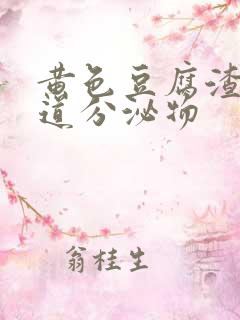 黄色豆腐渣
道分泌物
翁桂生